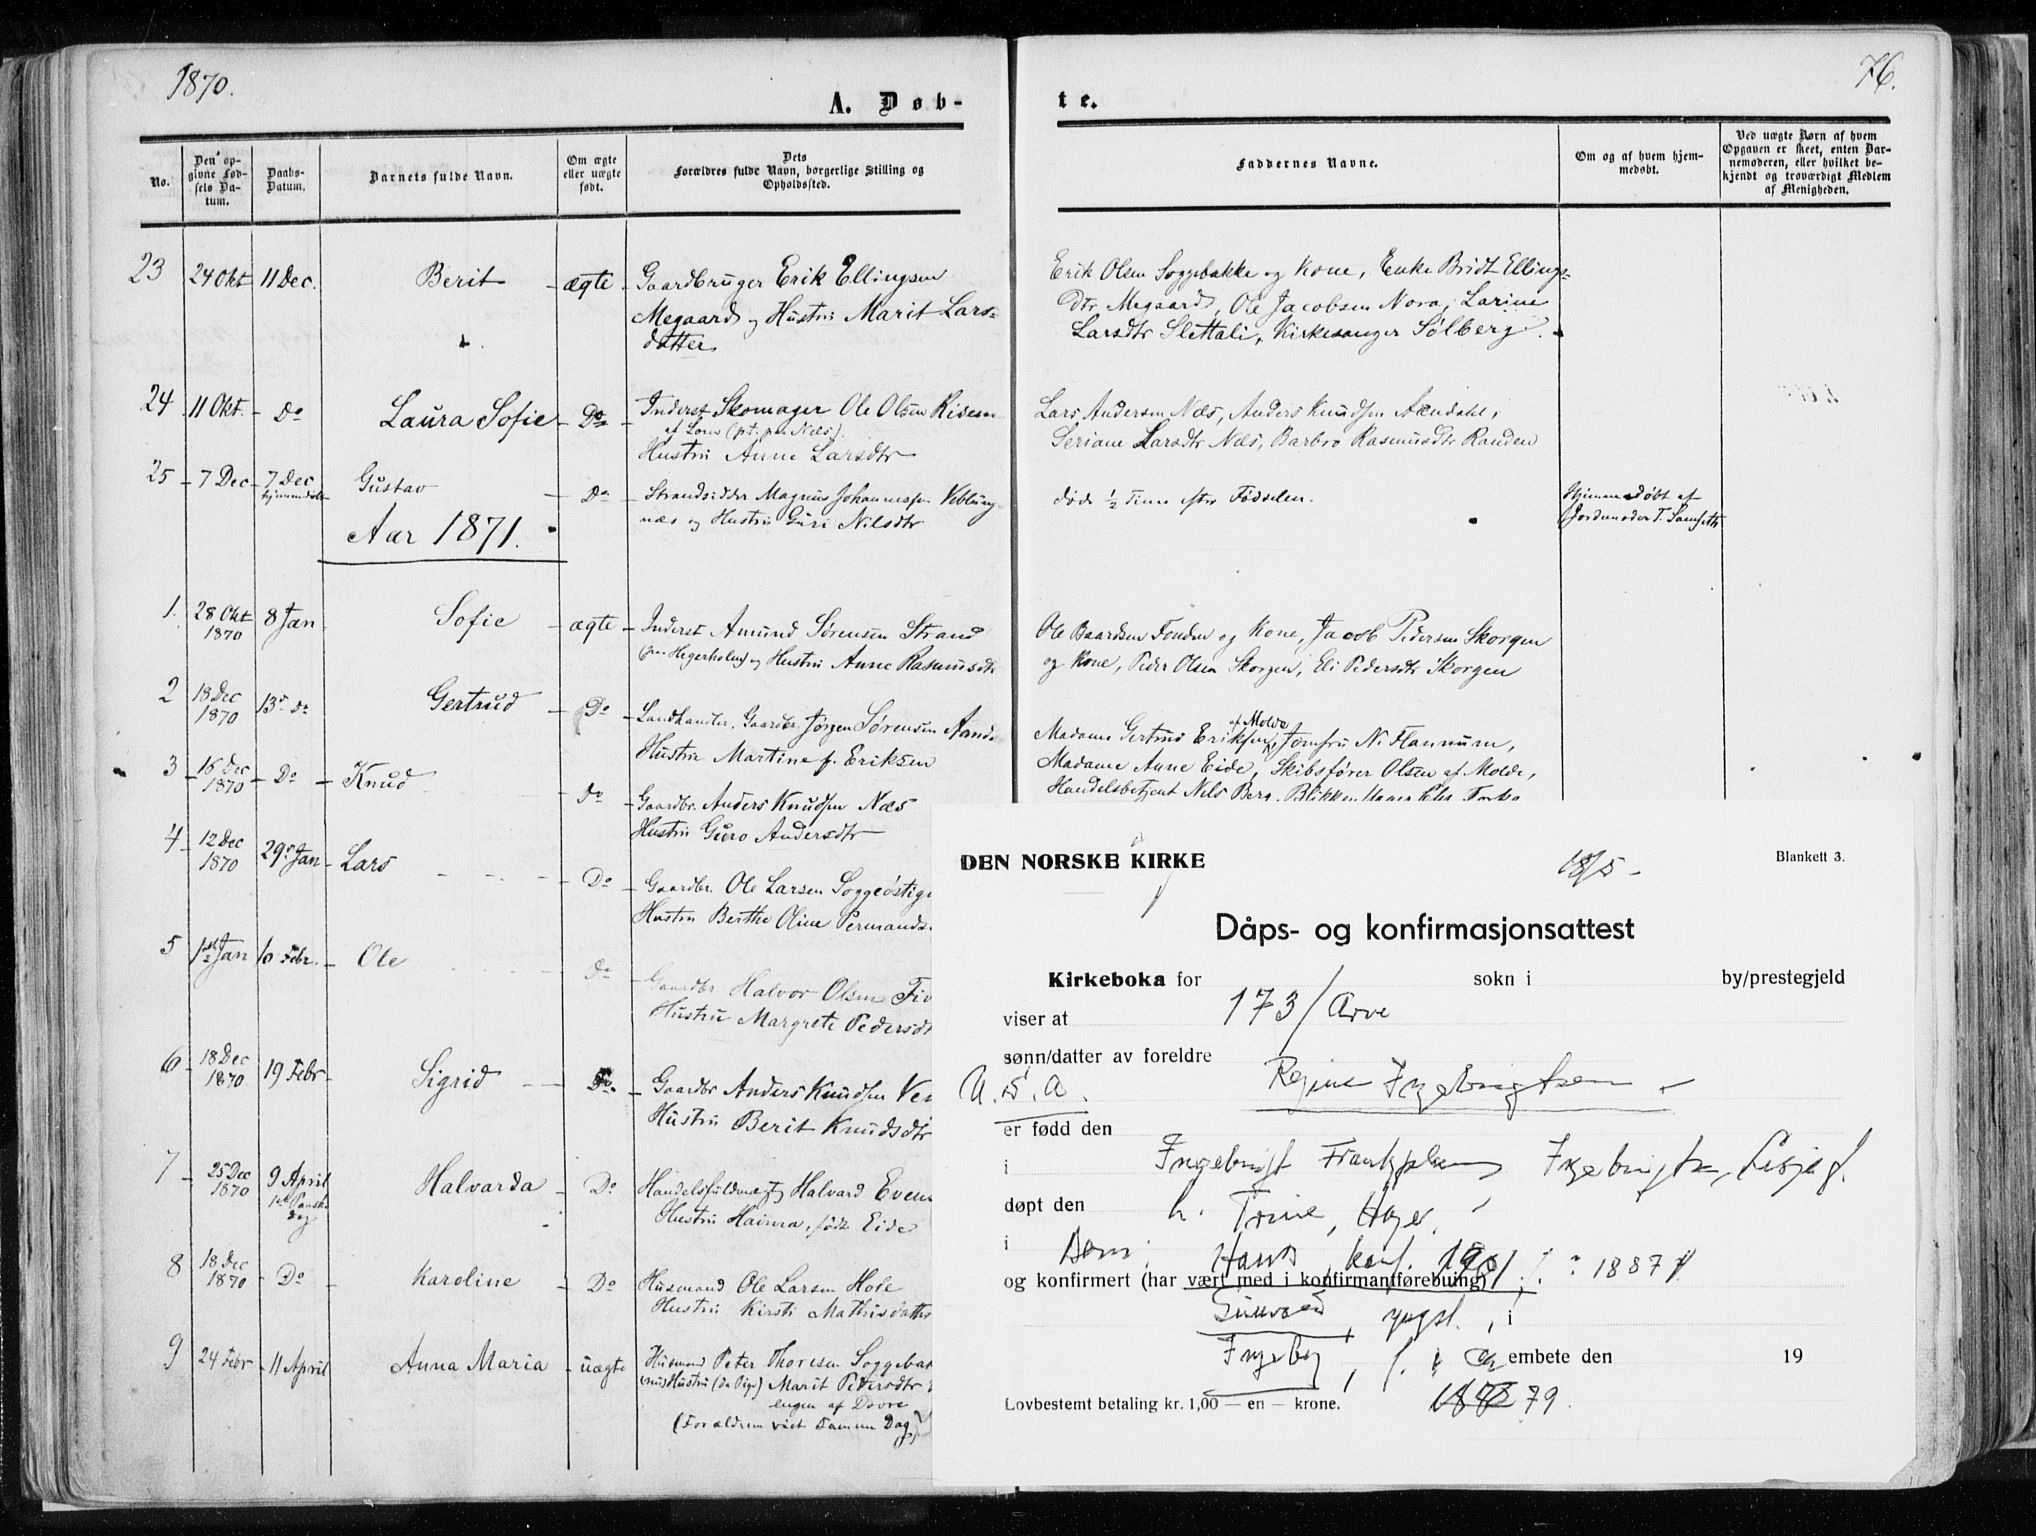 1870.
76.
A. Døb-
te.
No.
Den opgivne Fødsels Datum.
Daabs-Datum.
Barnets fulde Navn.
Om ægte eller uægte født.
Dets Forældres fulde Navn, borgerlige Stilling og Opholdssted.
Faddernes Navne.
Om og af hvem hjemmedøbt.
Ved uægte Børn af hvem Opgaven er skeet, enten Barnemoderen, eller hvilket bekjendt og troværdigt Medlem af Menigheden.
23 24 Okt 11 Dec. Berit - ægte - Gaardbruger Erik Ellingsen
Megaard og Hustru Marit Lars-
datter
Erik Olsen Soggebakke og Kone, Enke Bridt Ellings-
dtr Megaard, Ole Jacobsen Nora, Larine
Larsdtr Slettali, Kirkesanger Sølberg.
24 11 Okt. - Do Laura Sofie - Do - Inderst Skomager Ole Olsen
af Lom (pt. paa Næs).
Hustru Anne Larsdtr
Lars Andersen Næs, Anders Knudsen
Seriane Larsdtr Næs, Barbro Rasmusdtr Randen
25 - 7 Dec - 7 Dec Gustav - Do - Strandsidder Magnus Johannesen Veblung-
næs og Hustru Guri Nilsdtr
død ½ Time efter Fødselen.
Hjemmedøbt af
Jordmoder T.
Aar 1871.
1. 28 Okt 1870 8 Jan Sofie - ægte - Inderst Amund Sørensen Strand
(paa Hegerholm) og Hustru Anne Rasmusdtr
Ole Baardsen Fonden og Kone, Jacob Pedersen Skorgen
og Kone, Peder Olsen Skorgen, Eli Pedersdtr Skorgen
2 18 Dec 1870 13 do Gertrud - Do - Landhandler, Gaardbr. Jørgen Sørensen
Hustru Martine f. Eriksen
Madame Gertrud Eriksen af Molde, Jomfru N. Flannum,
Madame Anne Eide, Skibsfører Olsen af Molde,
Handelsbetjent Nils Berg,
3 - 16 Dec 1870 - Do - Knud Do - Gaardbr. Anders Knudsen Næs
Hustru Guro Andersdtr
4 - 12 Dec 1870 29 Jan - Lars - Do - Gaardbr. Ole Larsen
Hustru Berthe Oline
5 1 Jan 10 Febr. - Ole Do Gaardbr Halvor Olsen
Hustru Margrete
6 - 18 Dec 1870 19 Febr - Sigrid - Do. - Gaardbr Anders Knudsen
Hustru Berit Knudsdtr
7 - 25 Dec 1870 9 April Halvarda - Do Halvard
Hustru født Eide
8 18 Dec 1870 - Do - Karoline - Do Husmand Ole Larsen Hole
Hustru Kirsti
9 24 Febr - 11 April Anna Maria - uægte Husmand Peter Thoresen
Hustru (da Pige) Marit Pedersdtr
engen af Dovre
(Forældrene viet samme Dag)
DEN NORSKE KIRKE
18/5 -
Blankett 3.
Dåps- og konfirmasjonsattest
Kirkeboka for sokn i by/prestegjeld
viser at 173/Arve
sønn/datter av foreldre
U.S.A. Regine Ingebrigtsen -
er født den
i Ingebrigt
døpt den h. Trine,
i Hans, konf. 1901 1887
og konfirmert (har vært med i konfirmantførebuing)
yngst., i
, f. embete den 19
Lovbestemt betaling kr. 1,00 — en — krone. 79.